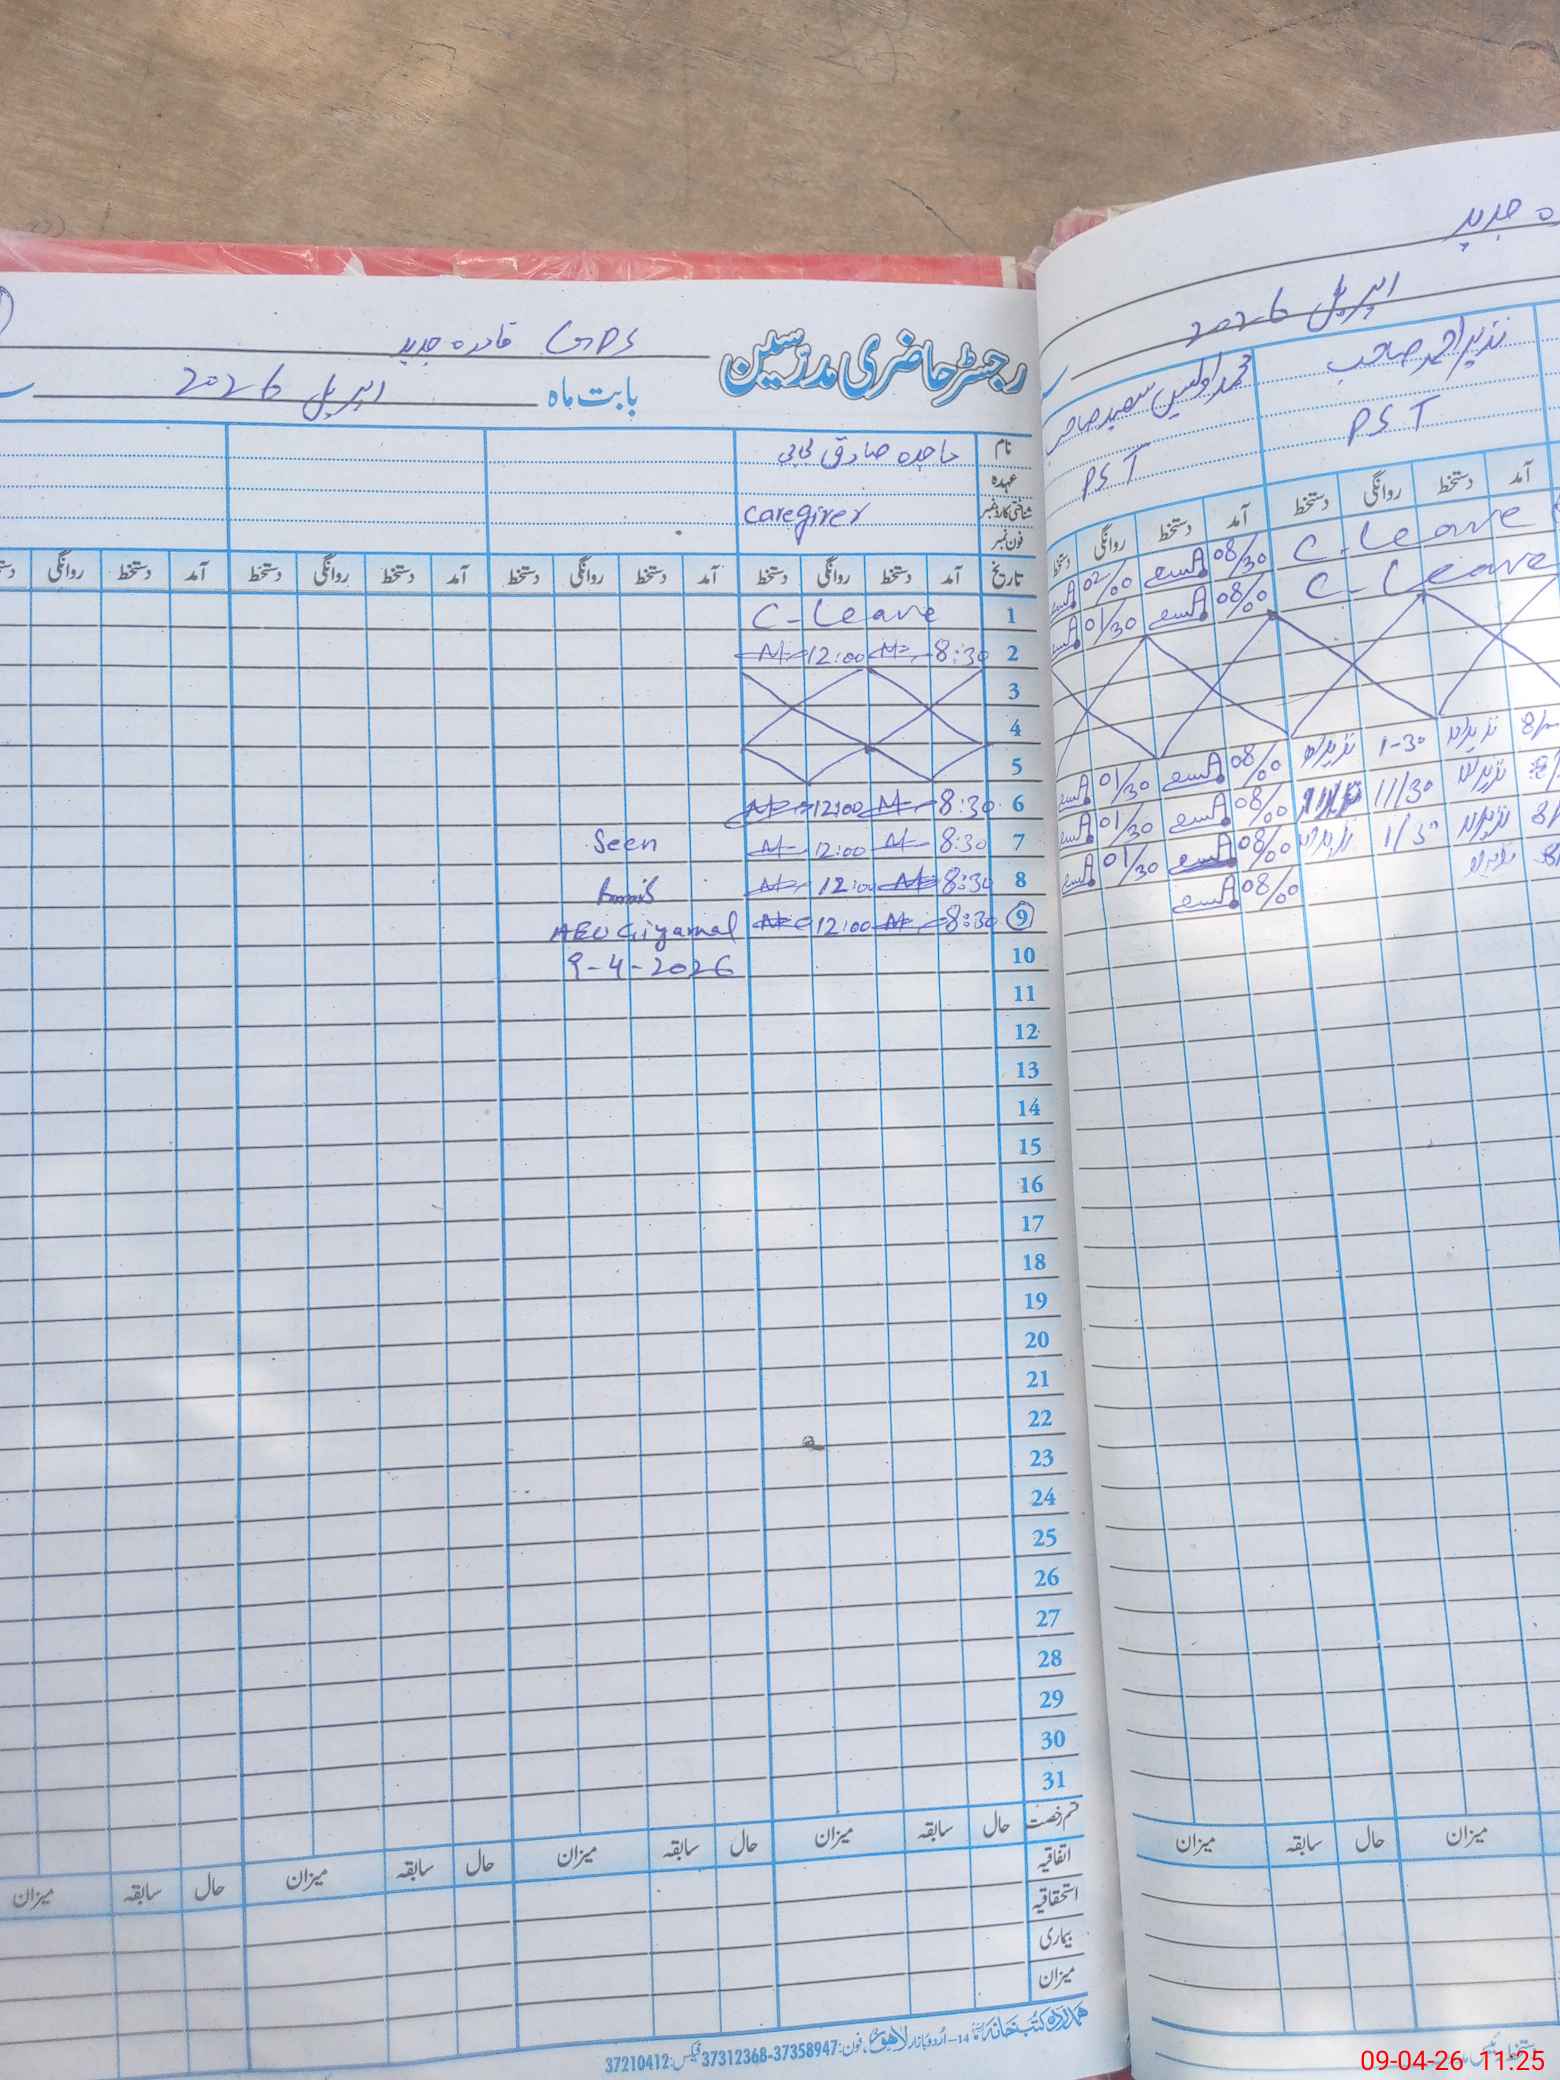 رجسٹر حاضری مدرّسین
GPS قادرہ جدید
بابت ماہ اپریل 2026
نام
ماجدہ صادق بی بی
عہدہ
شناختی کارڈ نمبر caregiver
فون نمبر
تاریخ آمد دستخط روانگی دستخط آمد دستخط روانگی دستخط آمد دستخط روانگی دستخط آمد دستخط روانگی
1 C-Leave
2 8:30 12:00
3
4
5
6 8:30 12:00
7 8:30 12:00 Seen
8 8:30 12:0
9 8:30 12:00 AEO
10 9-4-2026
11
12
13
14
15
16
17
18
19
20
21
22
23
24
25
26
27
28
29
30
31
قسم رخصت حال سابقہ میزان حال سابقہ میزان حال سابقہ میزان حال سابقہ میزان
اتفاقیہ
استحقاقیہ
بیماری
میزان
ہمدرد کتب خانہ 14-اُردو بازار لاہور، فون:37358947-37312368 فیکس:37210412
جدید
اپریل 2026
نذیر احمد صاحب
محمد اویس سعید صاحب
PST
PST
آمد دستخط روانگی دستخط آمد دستخط روانگی دستخط
C-Leave 08/30 02/00
C-Leave 08/00 01/30
1-30 08/00 01/30
11/30 08/00 01/30
1/30 08/00 01/30
08/00
میزان حال سابقہ میزان
09-04-26 11:25